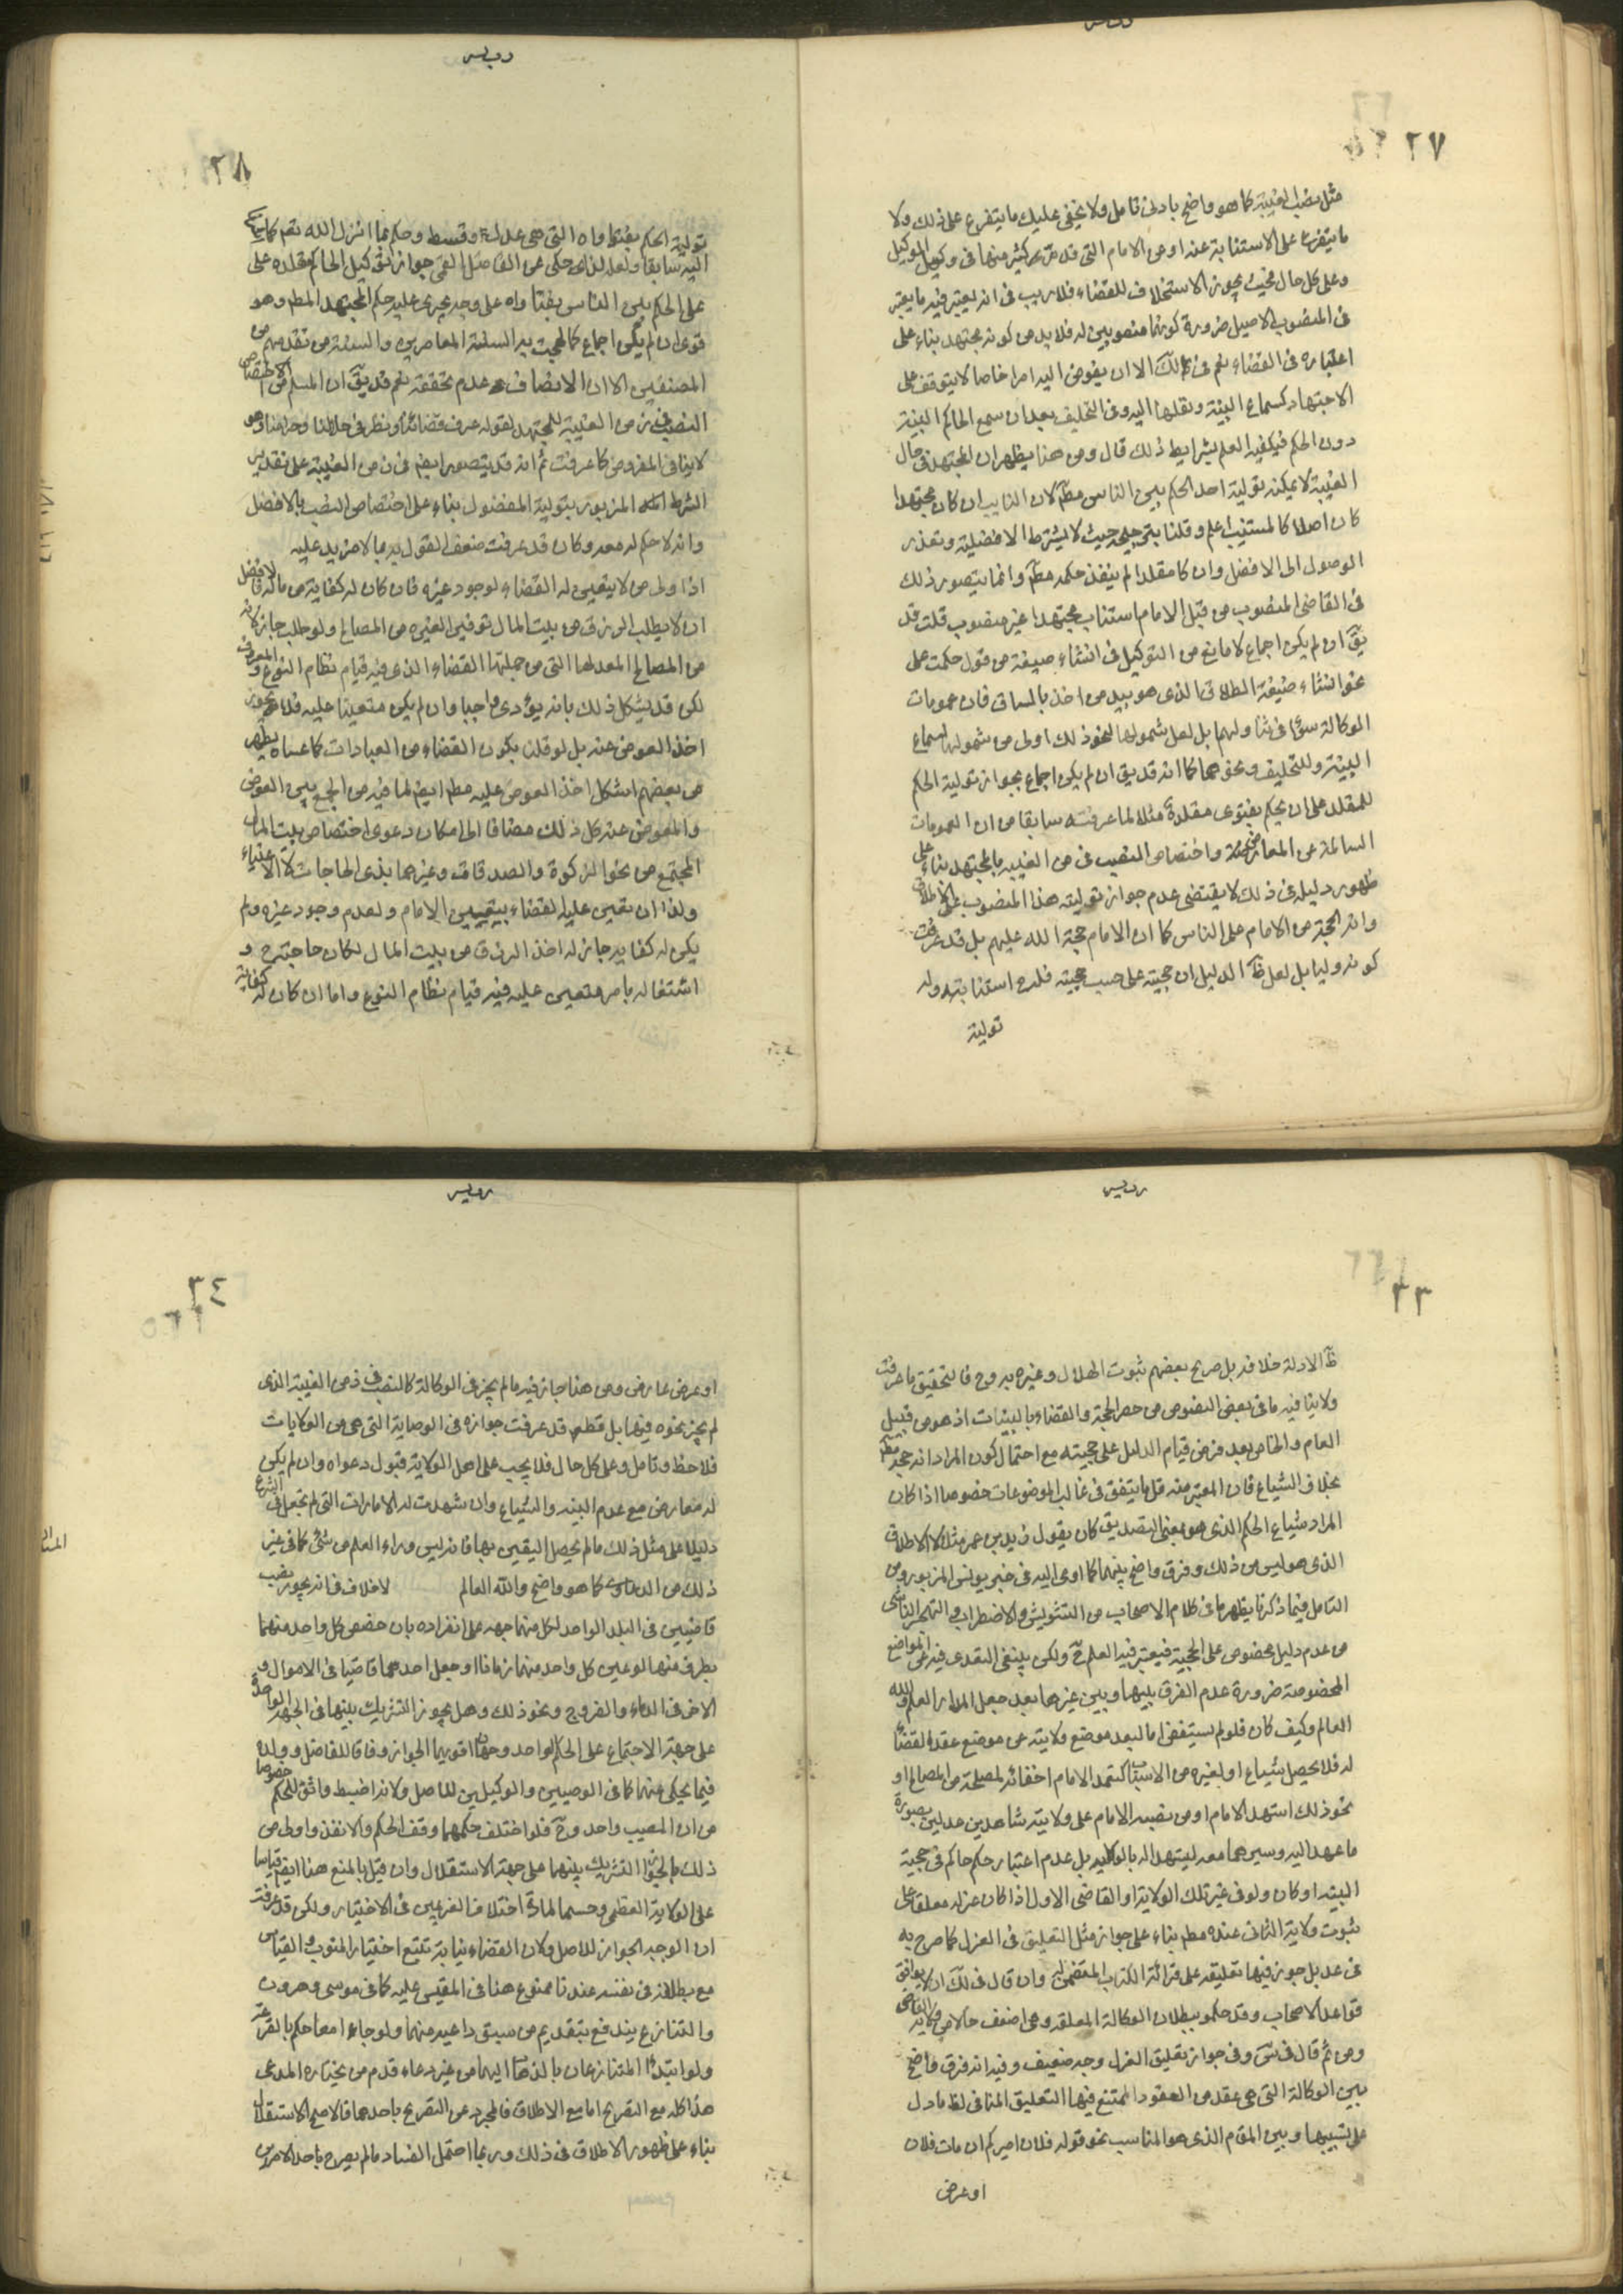 ٢٧
مثل نصب الغيبة كما هو واضح بادنى تامل ولا يخفى عليك ما يتفرع على ذلك ولا
ما يتفرع على الاستنابة عنه او عن الامام التى قد مر كثير منها فى وكيل الوكيل
وعلى كل حال فحيث يجوز الاستخلاف للقضاء فلا ريب فى انه يعتبر فيه ما يعتبر
فى المنصوب الاصيل ضرورة كونهما منصوبين له فلا بد من كونه مجتهد بناء على
اعتباره فى القضاء نعم فى لك الا ان يفوض اليه امرا خاصا لا يتوقف على
الاجتهاد كسماع البينة ونقلها اليه وفى التحليف بعد ان سمع الحاكم البينة
دون الحكم فيكفيه العلم بشرايط ذلك قال ومن هنا يظهر ان المجتهد فى حال
الغيبة لا يمكنه تولية احد الحكم بين الناس مطم لان النايب ان كان مجتهدا
كان اصلا كالمستنيب اعلم وقلنا بترجيحه حيث لا يشترط الافضلية وتعذر
الوصول الى الافضل وان كا مقلدا لم ينفذ حكمه مطم وانما يتصور ذلك
فى القاضى المنصوب من قبل الامام استناب مجتهدا غير منصوب قلت قد
يق ان لم يكن اجماع لا مانع من التوكيل فى انشاء صيغة من قول حكمت على
نحو انشاء صيغة الطلاق الذى هو بيد من اخذ بالساق فان عمومات
الوكالة سواء فى تناولهما بل لعل شمولها لنحو ذلك اولى من شمولها لسماع
البينة وللتحليف ونحوهما كما انه قد يق ان لم يكن اجماع بجواز تولية الحكم
للمقلد على ان يحكم بفتوى مقلده مثلا لما عرفته سابقا من ان العمومات
السالمة عن المعارضة واختصاص النصب فى من الغيبة بالمجتهد بناء على
ظهور دليله فى ذلك لا يقتضى عدم جواز توليته هذا المنصوب على الاطلاق
وانه الحجة من الامام على الناس كما ان الامام حجة الله عليهم بل قد عرفت
كونه وليا بل لعل ظ الدليل ان حجيته على حسب حجيته فله ح استنابته وله
تولية
٢٨
تولية الحكم بفتواه التى هى عدل وقسط وحكم بما انزل الله نعم كما
اليه سابقا ولعله لذا حكى عن الفاضل القمى جواز توكيل الحاكم مقلده على
على الحكم بين الناس بفتاواه على وجه يجرى عليه حكم المجتهد المطم وهو
قوى ان لم يكن اجماع كما لهجت به السنة المعاصرين والسنة من تقدمهم من
المصنفين الا ان الانصاف عدم تحققه نعم قد يق ان المسلم من الاختصاص
النصب فى زمن الغيبة للمجتهد لقوله عرف قضائنا ونظر فى حلالنا وحرامنا وهو
لا ينافى المفروض كما عرفت ثم انه قد يتصور ايضم فى زمن الغيبة على تقدير
الشرط المزبور بتولية المفضول بناء على اختصاص النصب بالافضل
وانه لا حكم له معه وكان قد عرفت ضعف القول به بما لا مزيد عليه
اذا ولى من لا يتعين له القضاء لوجود غيره فان كان له كفاية من ماله فالافضل
ان لا يطلب الرزق من بيت المال توفيرا لغيره من المصالح ولو طلب جاز لانه
من المصالح المعد لها التى من جملتها القضاء الذى فيه قيام نظام النوع والمعروف
لكن قد يشكل ذلك بانه يؤدى واجبا وان لم يكن متعينا عليه فلا يجوز
اخذ العوض عنه بل لو قلنا بكون القضاء من العبادات كما عساه يظهر
من بعضهم اشكل اخذ العوض عليه مطم ايضم لما فيه من الجمع بين العوض
والمعوض عنه كل ذلك مضافا الى امكان دعوى اختصاص بيت المال
المجتمع من نحو الزكوة والصدقات وغيرهما بذى الحاجات لا الاغنياء
ولذا ان تعين عليه القضاء بتعيين الامام ولعدم وجود غيره ولم
يكن له كفاية جاز له اخذ الرزق من بيت المال لكان حاجته ح و
اشتغاله بامر متعين عليه فيه قيام نظام النوع واما ان كان له كفاية
٣٣
ظ الادلة خلافه بل صريح بعضهم ثبوت الهلال وغيره به وح فالتحقيق ما عرفت
ولا ينافيه ما فى بعض النصوص من حصر الحجة والقضاء بالبينات اذ هو من قبيل
العام والخاص بعد فرض قيام الدليل على حجيته مع احتمال كون المراد انه حجة مطم
بخلاف الشياع فان المعتبر منه قل ما يتفق فى غالب الموضوعات خصوصا اذا كان
المراد شياع الحكم الذى هو بمعنى التصديق كان يقول زيد بن عمر مثلا لا الاطلاق
الذى هو ليس من ذلك وفرق واضح بينهما كما اومى اليه فى خبر يونس المزبور ومن
التامل فيما ذكرنا يظهر ما فى كلام الاصحاب من التشويش والاضطراب والتحير الناشى
من عدم دليل مخصوص على الحجية فيعتبر فيه العلم ح ولكن ينبغى التعدى فيه عن المواضع
المخصوصة ضرورة عدم الفرق بينها وبين غيرها بعد جعل المدار العلم والله
العالم وكيف كان فلو لم يستفض اما لبعد موضع ولايته عن موضع عقد القضاء
له فلا يحصل شياع او لغيره من الاسباب كتعمد الامام اخفائه لمصلحة من المصالح او
نحو ذلك استهد الامام او من نصبه الامام على ولايته شاهدين عدلين بصورة
ما عهد اليه وسيرهما معه ليشهدا له بالولاية بل عدم اعتبار حكم حاكم فى حجية
البينة او كان ولو فى غير تلك الولاية او القاضى الاول اذا كان عزله معلقا على
ثبوت ولاية الثانى عنده مطم بناء على جواز مثل التعليق فى العزل كما صرح به
فى عد بل جوز فيها تعليقه على قرائة الكتاب المتضمن له وان قال فى لك انه لا يوافق
قواعد الاصحاب وقد حكموا ببطلان الوكالة المعلقة وهى اضعف حالا من ولاية القاضى
ومن ثم قال فى س وفى جواز تعليق العزل وجه ضعيف وفيه انه فرق واضح
بين الوكالة التى هى عقد من العقود الممتنع فيها التعليق المنافى لظ ما دل
على تسبيبها وبين المقام الذى هو المناسب نحو قوله فلان اميركم ان مات فلان
او عرض
٣٤
او عرض عارض ومن هنا جاز فيه ما لم يجز فى الوكالة كالنصب فى زمن الغيبة الذى
لم يجز نحوه فيها بل قطعا قد عرفت جوازه فى الوصاية التى هى من الولايات
فلاحظ وتامل وعلى كل حال فلا يجب على اهل الولاية قبول دعواه وان لم يكن
له معارض مع عدم البينة والشياع وان شهدت له الامارات التى لم تجعل فى الشرع
دليلا على مثل ذلك ما لم يحصل اليقين بها فانه ليس وراء العلم من شئ كما فى غير
ذلك من الدعاوى كما هو واضح والله العالم لا خلاف فى انه يجوز نصب
قاضيين فى البلد الواحد لكل منهما جهة على انفراده بان خصص كل واحد منهما
بطرف منها او عين كل واحد منهما زمانا او جعل احدهما قاضيا فى الاموال و
الاخر فى الدماء والفروج ونحو ذلك وهل يجوز التشريك بينهما فى الجهة الواحدة
على جهة الاجتماع على الحكم الواحد وجهان اقويهما الجواز وفاقا للفاضل وولده
فيما يحكى عنهما كما فى الوصيين والوكيلين للاصل ولانه اضبط واثق للحكم خصوصا
من ان المصيب واحد وح فلو اختلف حكمهما وقف الحكم والا نفذ واولى من
ذلك بالجواز التشريك بينهما على جهة الاستقلال وان قيل بالمنع هنا ايضم قياسا
على الولاية العظمى وحسما لمادة اختلاف الغرمين فى الاختيار ولكن قد عرفت
ان الوجه الجواز للاصل ولان القضاء نيابة تتبع اختيار المنوب والقياس
مع بطلانه فى نفسه عندنا ممنوع هنا فى المقيس عليه كما فى موسى وهرون
والتنازع يندفع بتقديم من سبق داعيه منهما ولو جاءا معا حكم بالقرعة
ولو ابتدأ المتنازعان بالذهاب اليهما من غير دعاء قدم من يختاره المدعى
هذا كله مع التصريح اما مع الاطلاق فالمجرد عن التصريح باحدهما فالاصح الاستقلال
بناء على ظهور الاطلاق فى ذلك وربما احتمل الفساد ما لم يصرح باحد الامرين